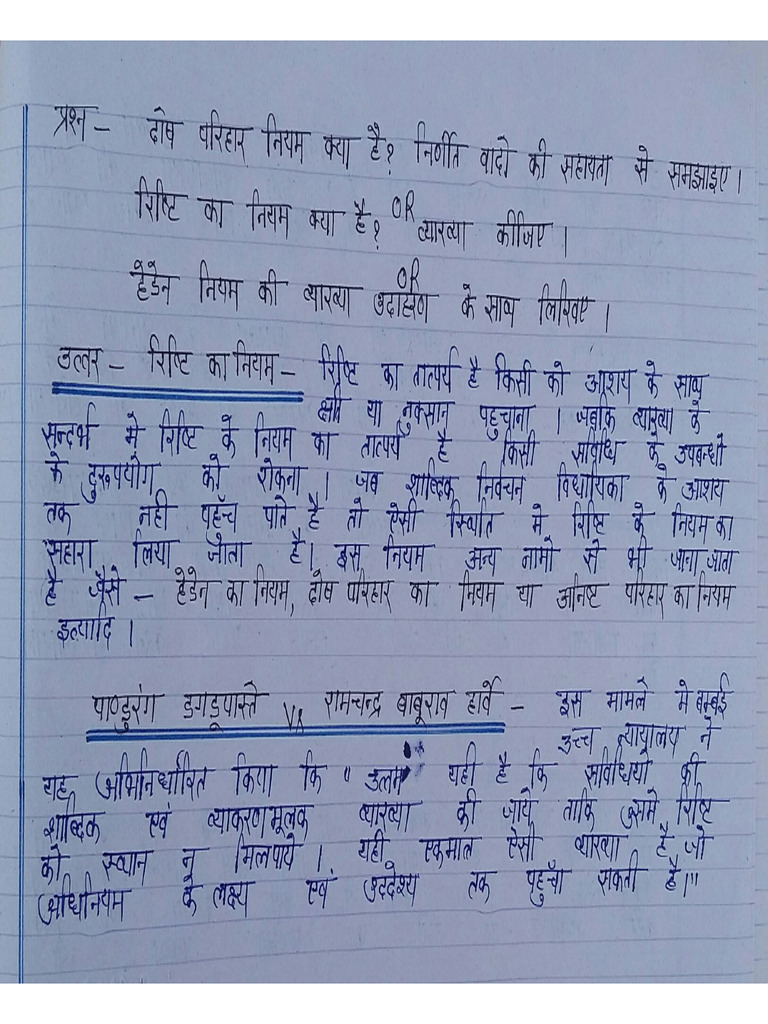 प्रश्न - दोष परिहार नियम क्या है? निर्णीत वादो की सहायता से समझाइए।
OR
रिष्टि का नियम क्या है? व्याख्या कीजिए।
OR
हेडेन नियम की व्याख्या उदाहरण के साथ लिखिए।
उत्तर - रिष्टि का नियम - रिष्टि का तात्पर्य है किसी को आशय के साथ
क्षति या नुकसान पहुचाना। जबकि व्याख्या के
सन्दर्भ मे रिष्टि के नियम का तात्पर्य है किसी संविधि के उपबन्धो
के दुरूपयोग को रोकना। जब शाब्दिक निर्वचन विधायिका के आशय
तक नही पहुँच पाते है तो ऐसी स्थिति मे रिष्टि के नियम का
सहारा लिया जाता है। इस नियम अन्य नामो से भी जाना जाता
है जैसे - हेडेन का नियम, दोष परिहार का नियम या अनिष्ट परिहार का नियम
इत्यादि।
पाण्डुरंग डगडूपास्ते Vs रामचन्द्र बाबूराव हार्वे - इस मामले मे बम्बई
उच्च न्यायालय ने
यह अभिनिर्धारित किया कि "उत्तम यही है कि संविधियो की
शाब्दिक एवं व्याकरणमूलक व्याख्या की जाये ताकि उसमे रिष्टि
को स्थान न मिलपाये। यही एकमात्र ऐसी व्याख्या है जो
अधिनियम के लक्ष्य एवं उद्देश्य तक पहुँचा सकती है।"